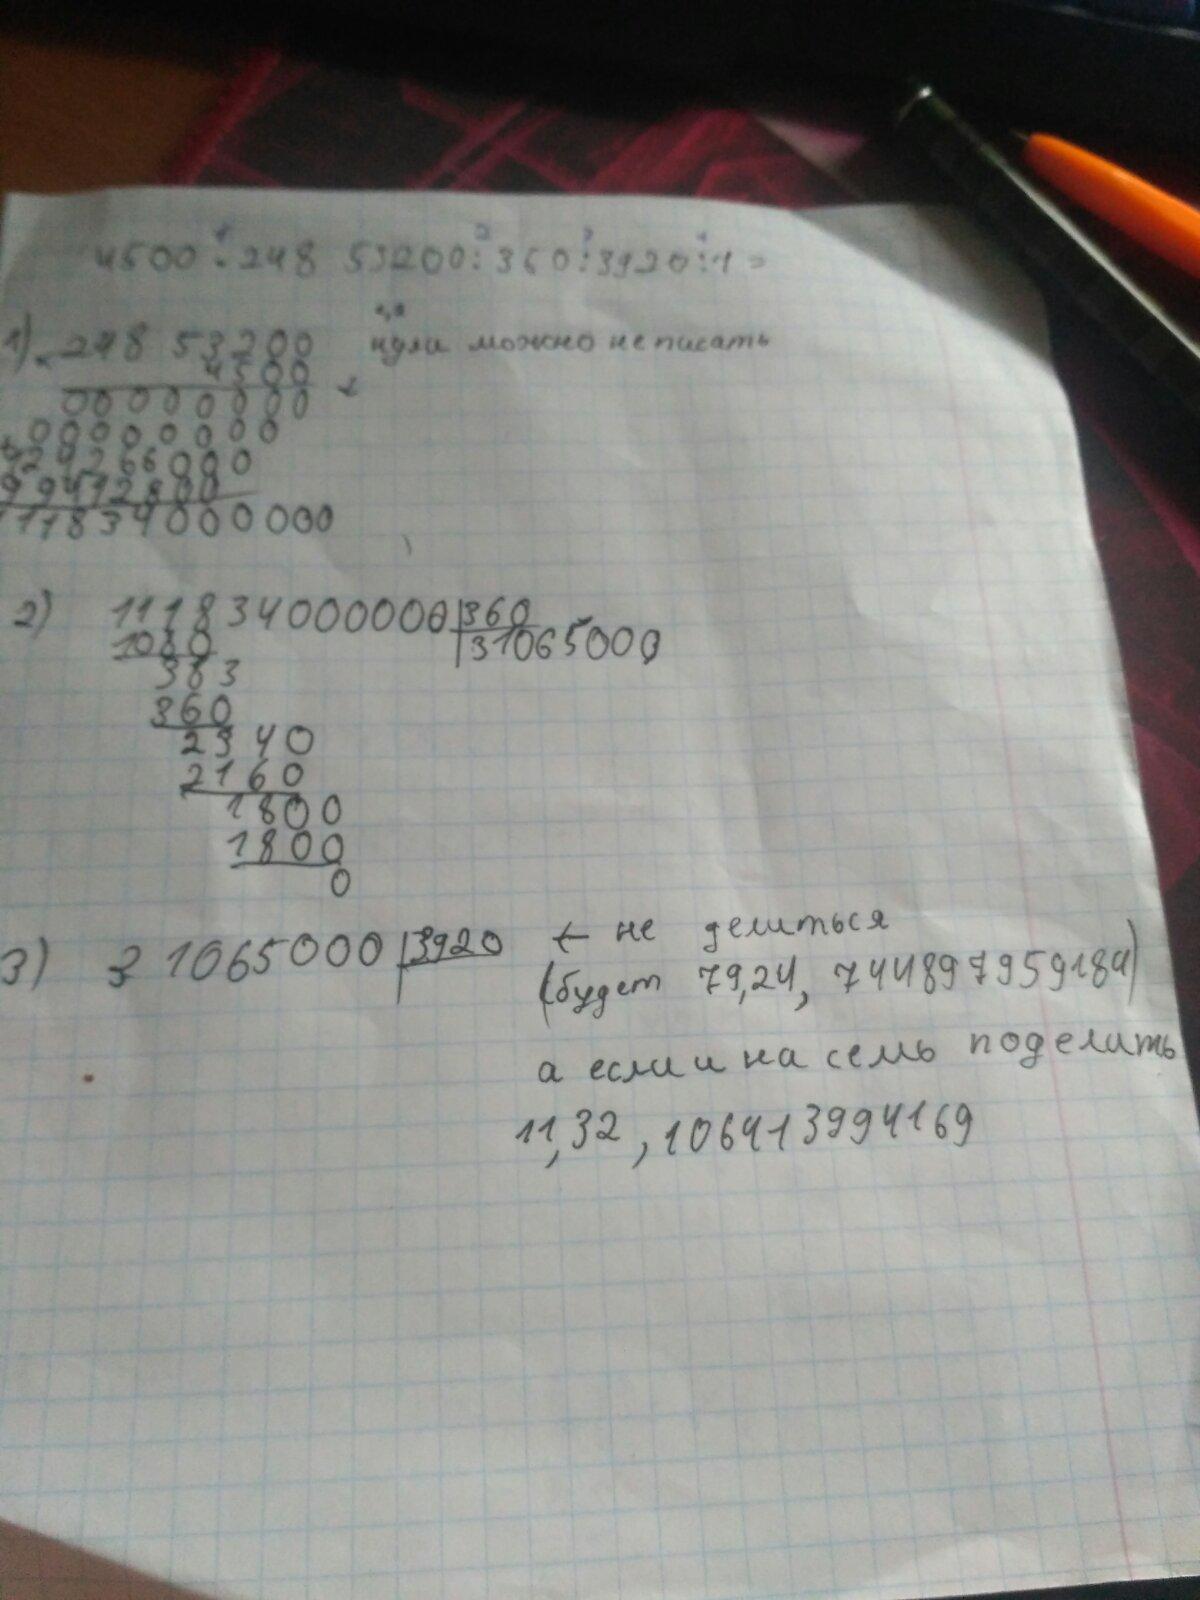 4500 · 248 53200 : 360 : 3920 : 7 =
1) 248 53200 нули можно не писать
4500
00000000
00000000
124266000
99412800
111834000000
2) 111834000000 | 360
1080 310650000
383
360
2340
2160
1800
1800
0
3) 31065000 | 3920 ← не делиться
(будет 79,24, 744897959184)
а если и на семь поделить
11,32, 106413994169